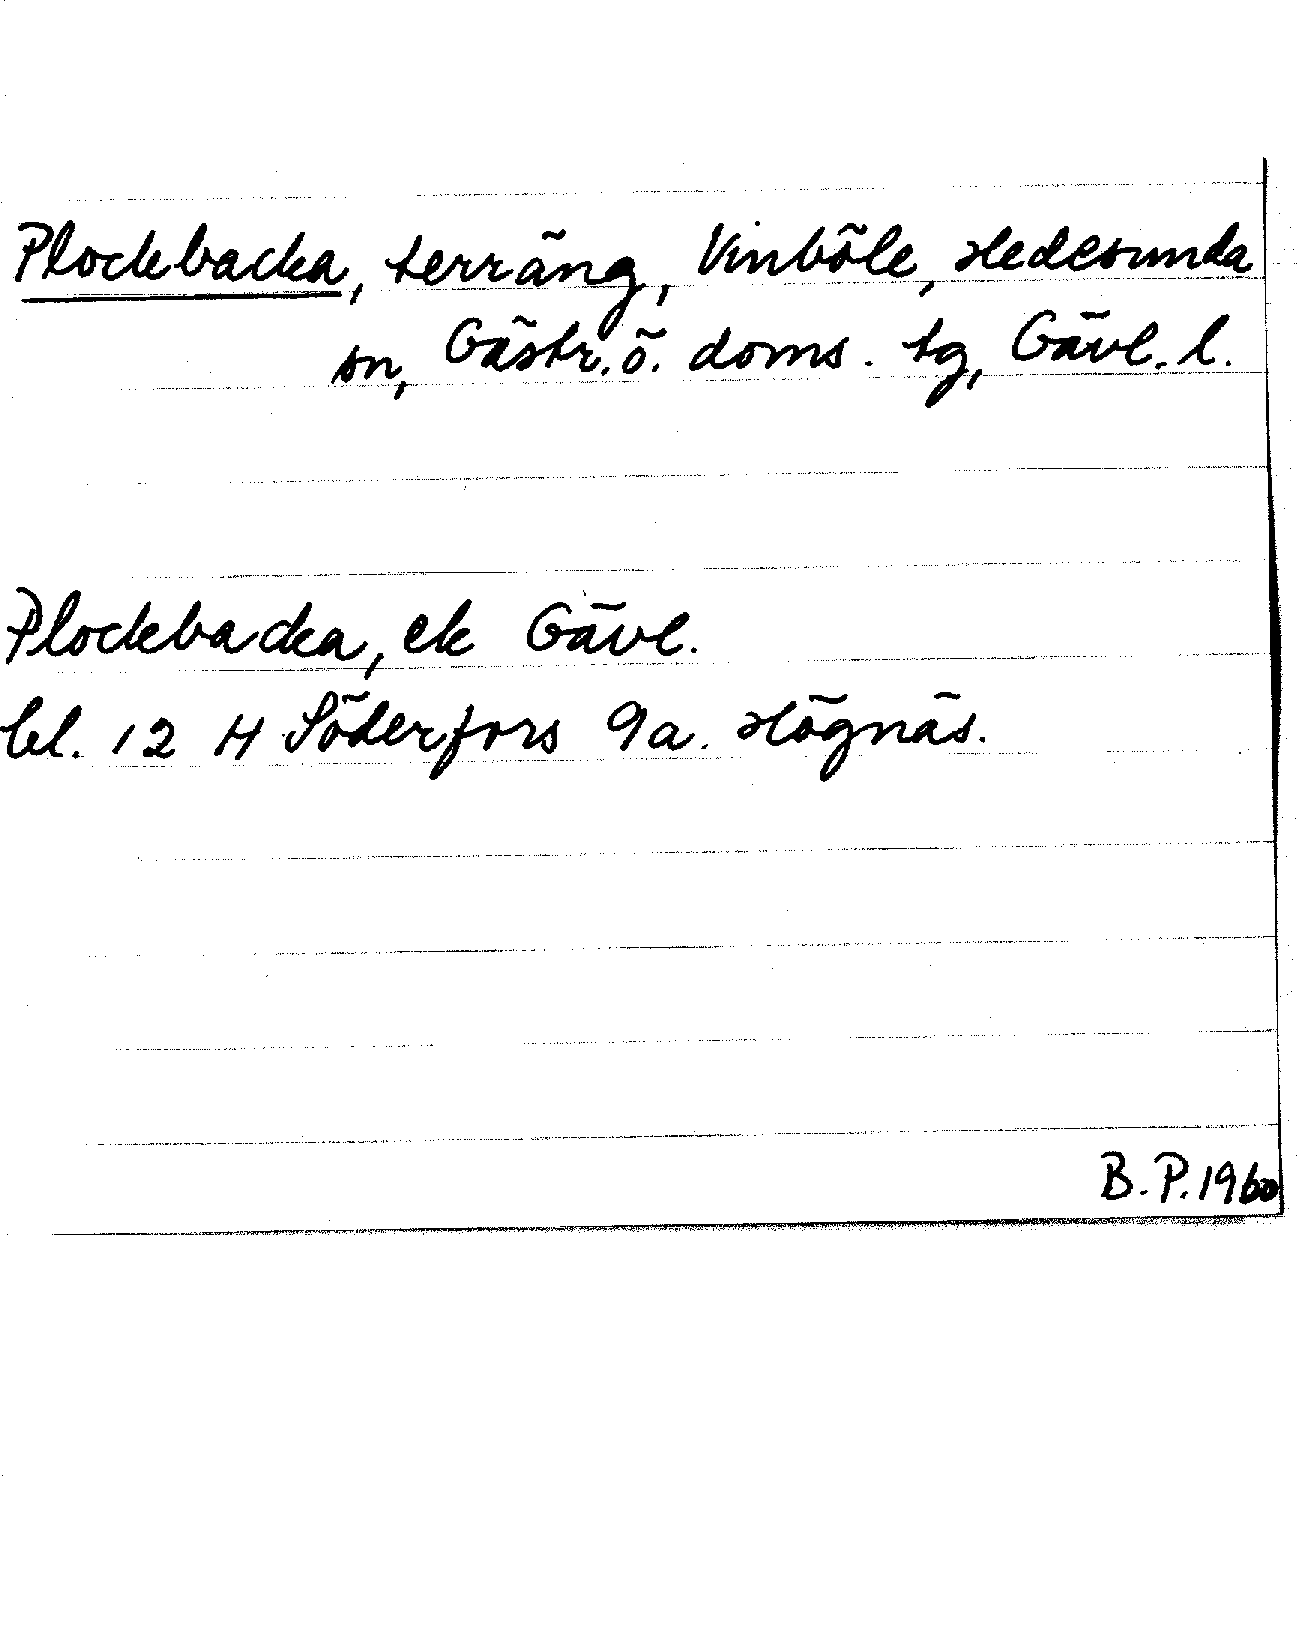 Plockbacka, terräng, Vinböle, Hedesunda
sn, Gästr. ö. doms. tg, Gävl. l.
Plockbacka, ek Gävl.
bl. 12 H Söderfors 9a. Högnäs.
B. P. 1960